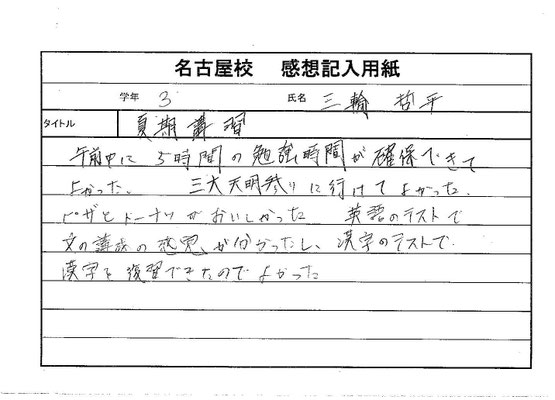 名古屋校 感想記入用紙
学年 3 氏名 三輪 哲平
タイトル 夏期講習
午前中に5時間の勉強時間が確保できて
よかった。 三大天明参りに行けてよかった。
ピザとドーナツがおいしかった 英語のテストで
文の構成の感覚が分かったし、漢字のテストで
漢字を復習できたのでよかった